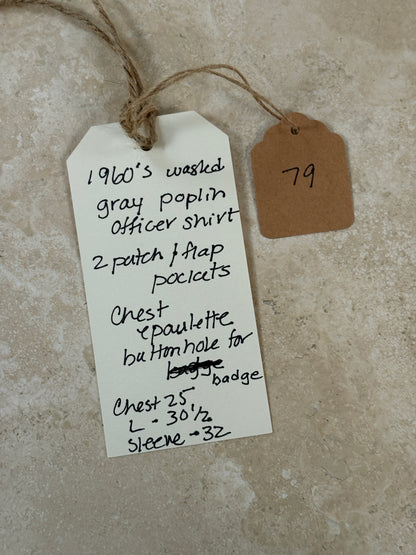 1960's washed
gray poplin
officer shirt
2 patch / flap
pockets
Chest
epaulette
buttonhole for
badge
Chest 25
L - 30 1/2
sleeve - 32
79